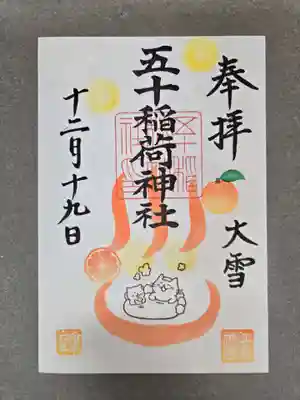 奉拝
大雪
五十稲荷神社
十二月十九日